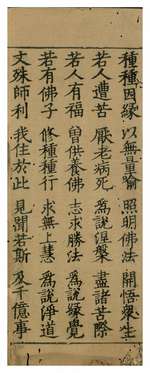 種種因緣 以無量喻 照明佛法 開悟衆生
若人遭苦 厭老病死 爲說涅槃 盡諸苦際
若人有福 曾供養佛 志求勝法 爲說緣覺
若有佛子 修種種行 求無上慧 爲說淨道
文殊師利 我住於此 見聞若斯 及千億事